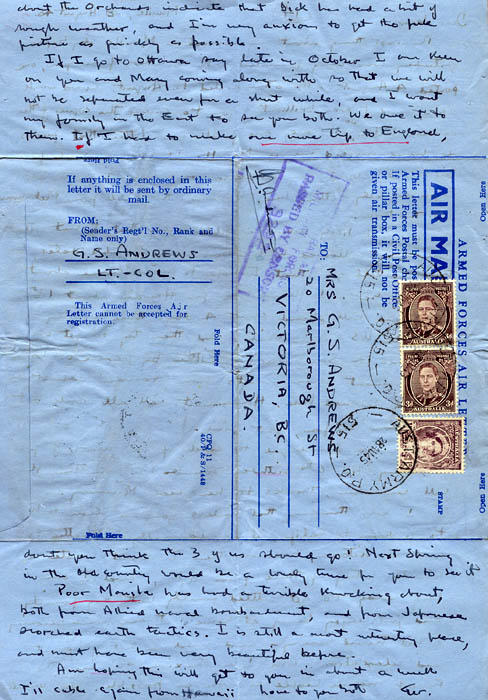 about the Orchards indicate that Dick has had a bit of
rough weather, and I'm very anxious to get the full
picture as quickly as possible.
If I go to Ottawa say late in October I am keen
on you and Mary coming along with so that we will
not be separated even for a short while, and I want
my family in the East to see you both. We owe it to
them. If I had to make one more trip to England,
Fold Here
If anything is enclosed in this
letter it will be sent by ordinary
mail.
FROM:
(Sender's Regt'l No., Rank and
Name only)
G.S. ANDREWS
LT.-COL.
This Armed Forces Air
Letter cannot be accepted for
registration.
Fold Here
CPO 11
40/P & S/1448
Fold Here
Open Here
ARMED FORCES AIR LETTER
AIR MAIL
This letter must be posted
Armed Forces Postal
If posted in a Civil Post Office
or pillar box, it will not be
given air transmission.
PASSED BY CENSOR
TO: MRS G.S. ANDREWS
20 Marlborough St
VICTORIA, B.C.
CANADA.
AUSTRALIA
3d
AUSTRALIA
3d
AUST ARMY P.O.
515
STAMP
Open Here
don't you think the 3 of us should go! Next Spring
in the Old Country would be a lovely time for you to see it
Poor Manila has had a terrible knocking about,
both from Allied naval bombardment, and from Japanese
scorched earth tactics. I is still a most interesting place,
and must have been very beautiful before.
Am hoping this will get to you in about a week
I'll cable again from Hawaii love to you both